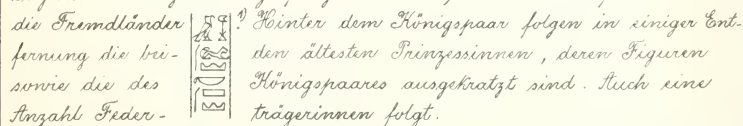 die Fremdländer ¹) Hinter dem Königspaar folgen in einiger Ent-
fernung die bei- den ältesten Prinzessinnen, deren Figuren
sowie die des Königspaares ausgekratzt sind. Auch eine
Anzahl Feder- trägerinnen folgt.